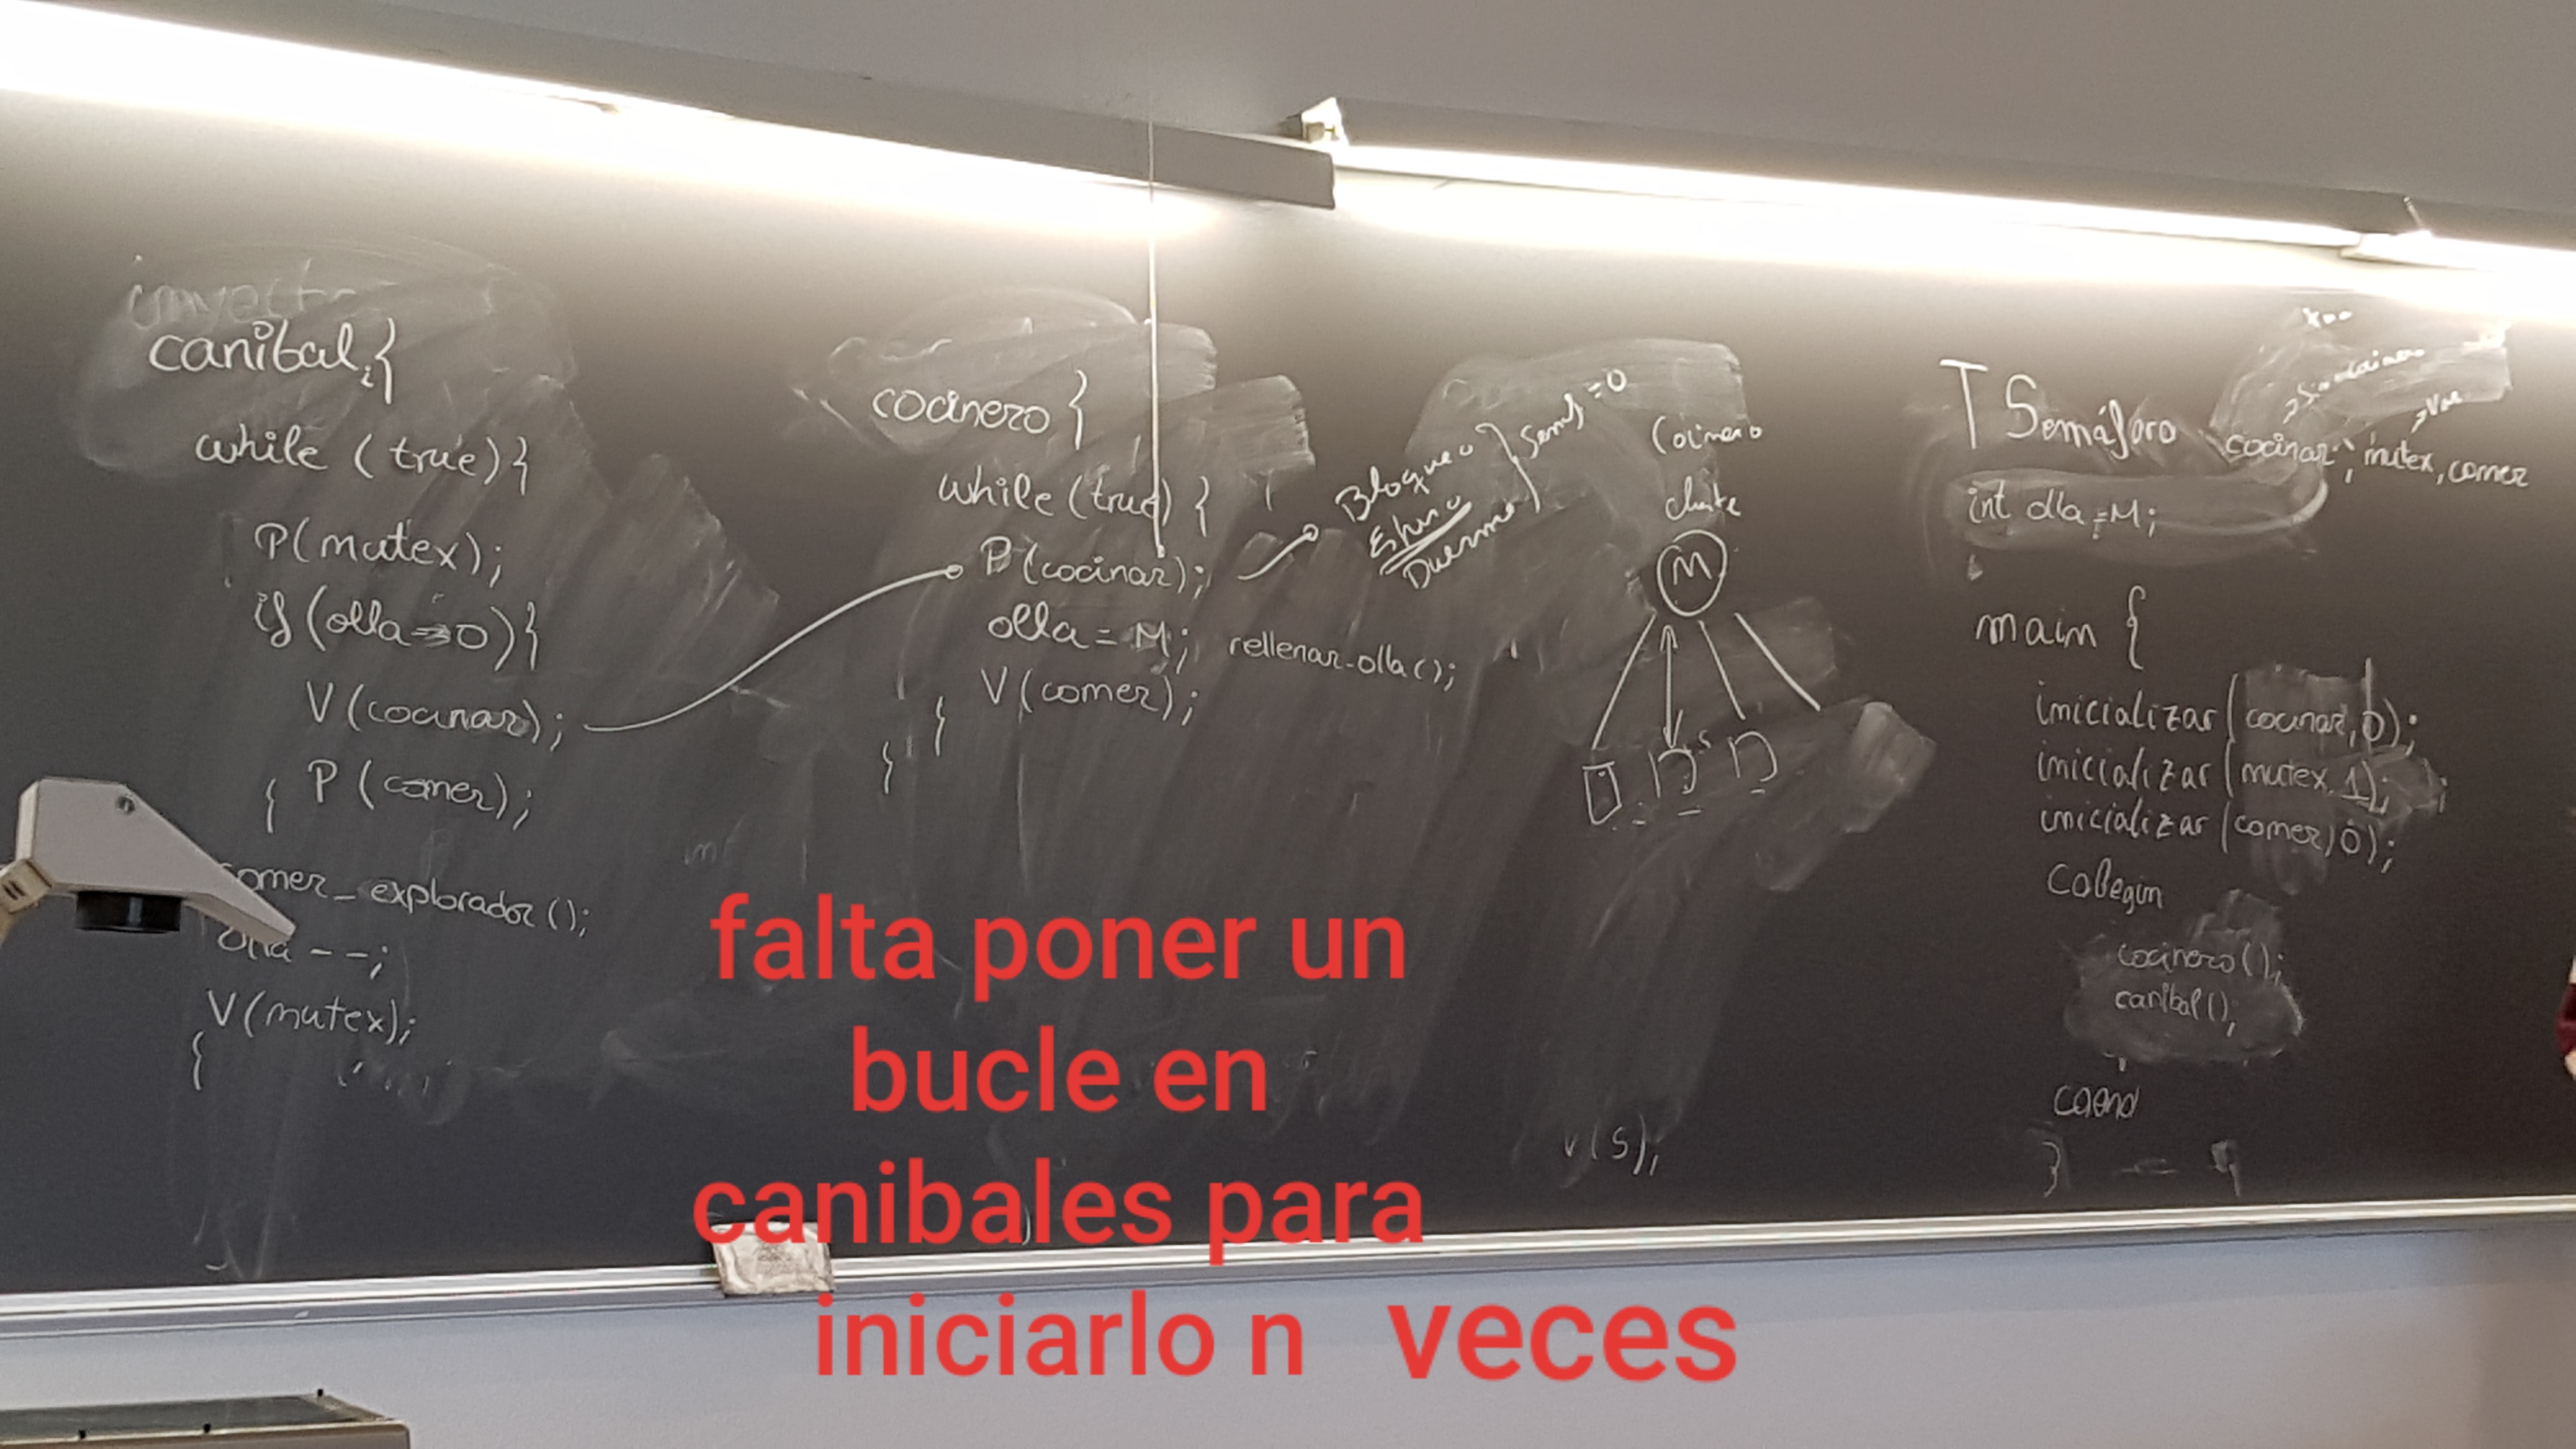 canibal i {
while (true) {
P(mutex);
if (olla==0) {
V(cocinar);
P(comer);
}
comer_explorador();
olla --;
V(mutex);
}
cocinero {
while (true) {
P(cocinar);
olla = M; rellenar_olla();
V(comer);
}
}
Bloqueo
Duerme
=0
Cocinero
M
V(S);
T Semáforo cocinar, mutex, comer
int olla=M;
main {
inicializar(cocinar,0);
inicializar(mutex,1);
inicializar(comer,0);
cobegin
cocinero();
canibal();
coend
}
falta poner un
bucle en
canibales para
iniciarlo n veces